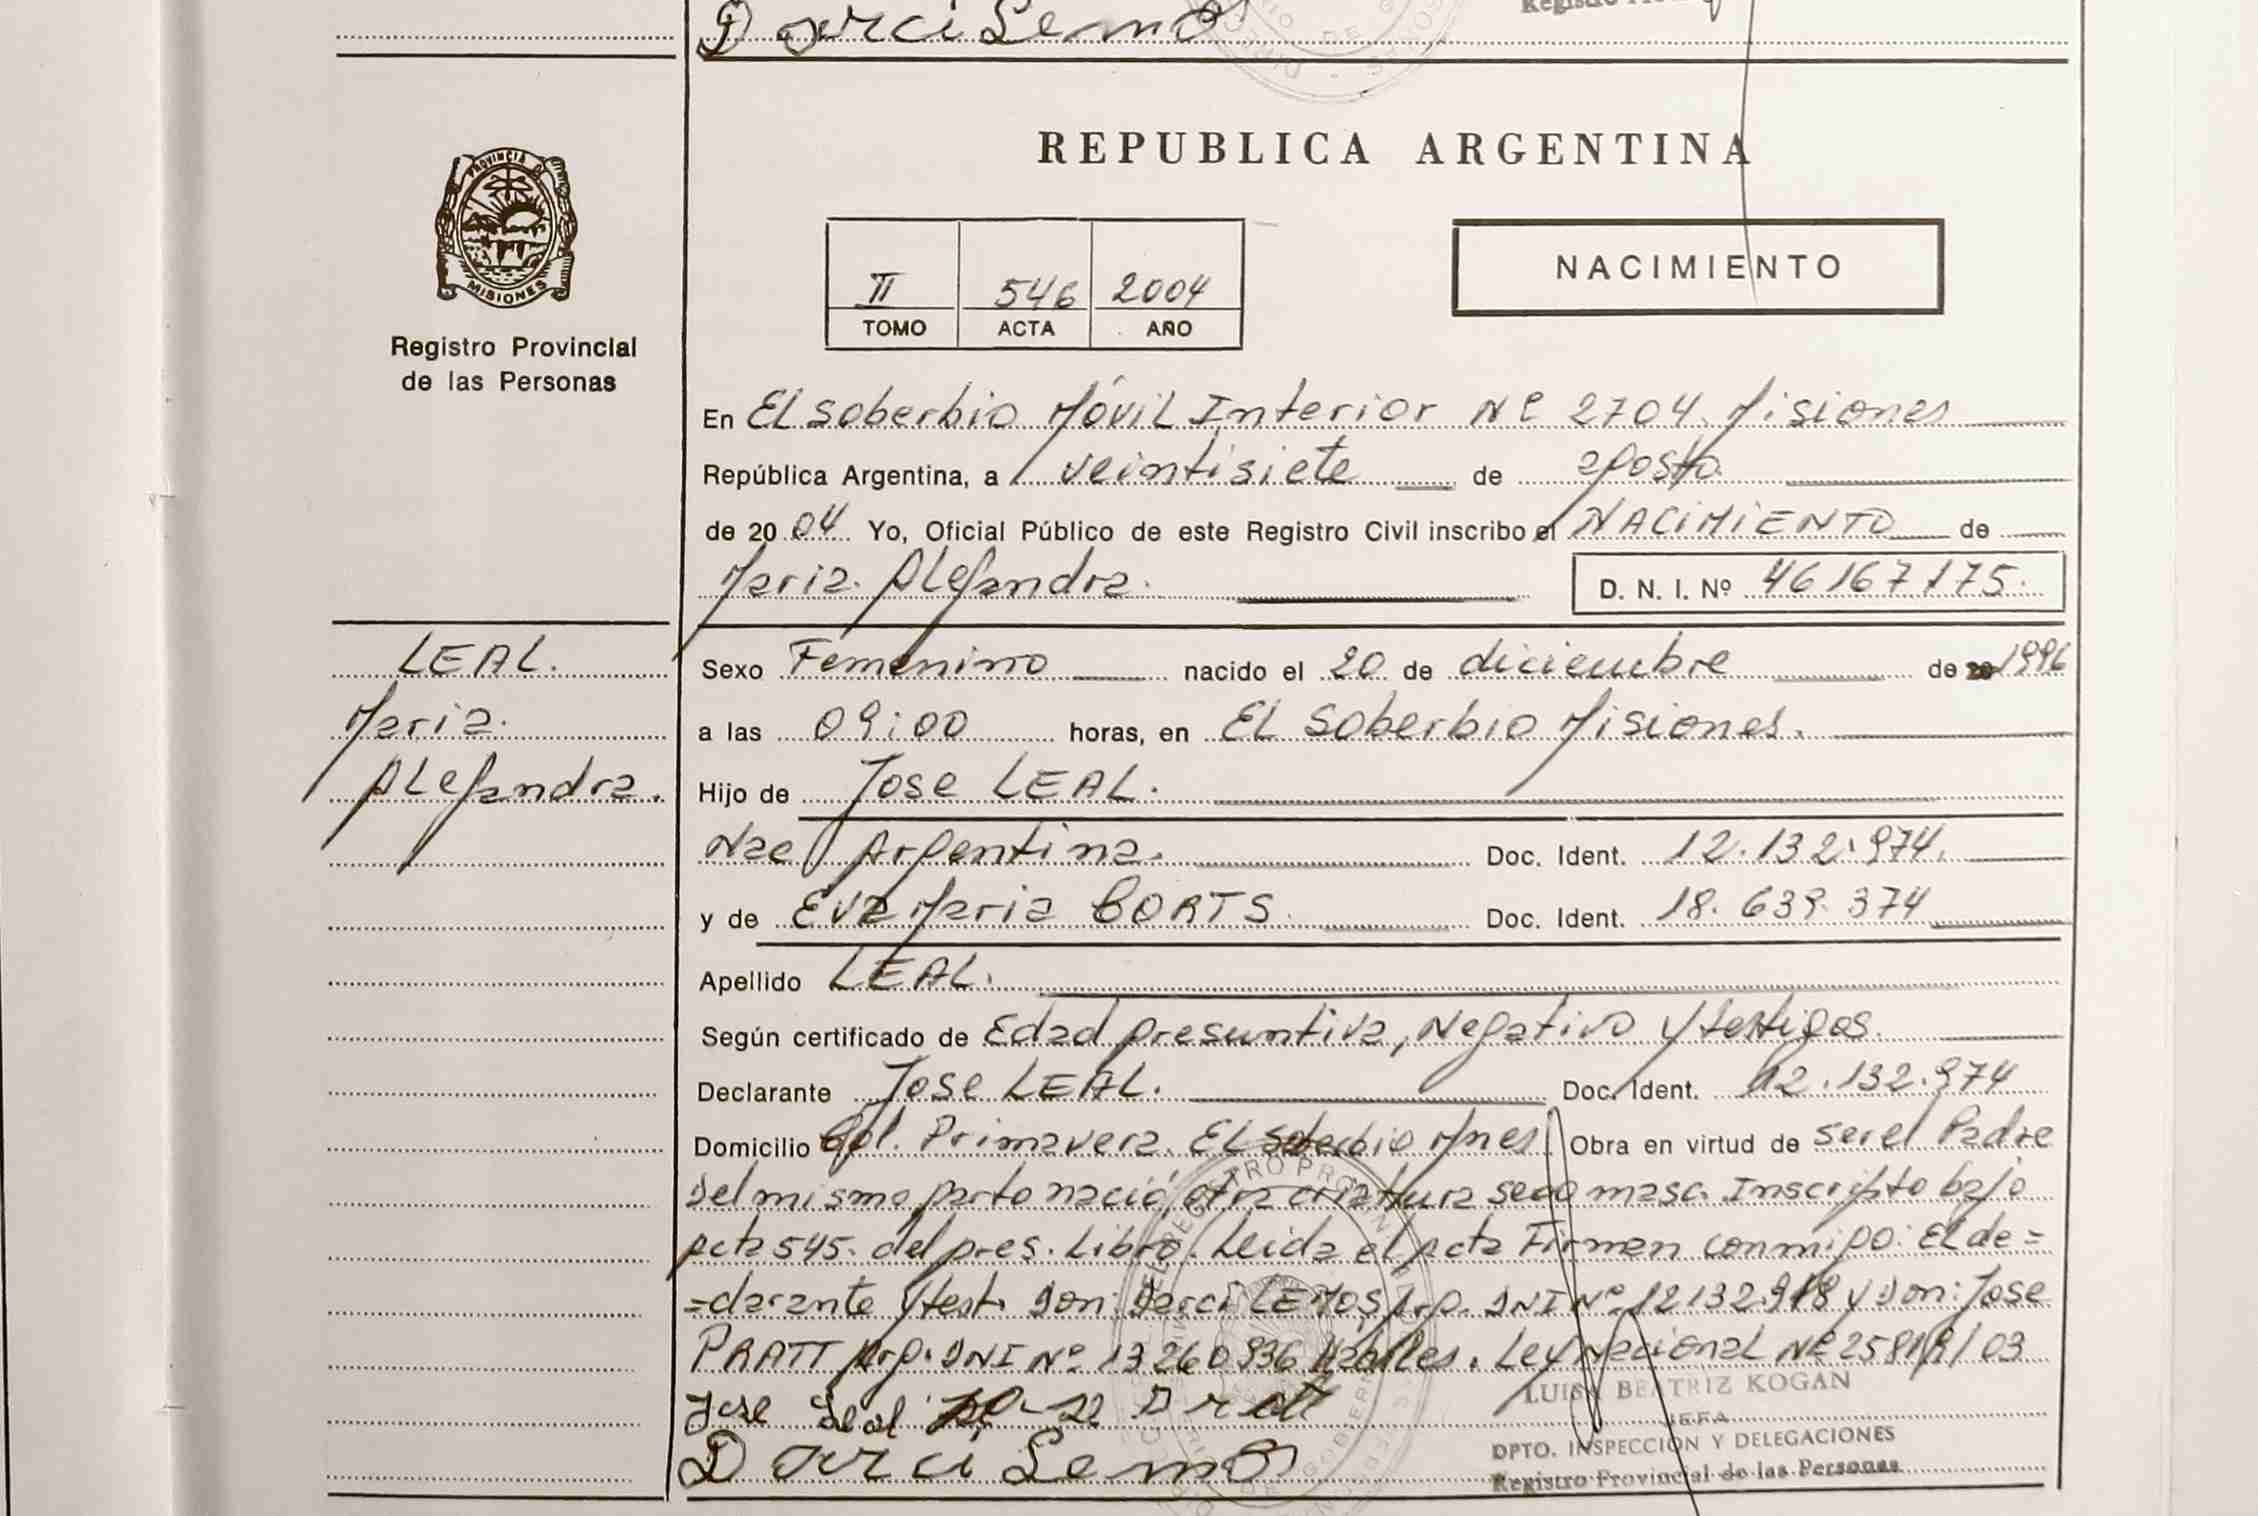 Darci Lemos
REPUBLICA ARGENTINA
PROVINCIA DE
MISIONES
Registro Provincial
de las Personas
II 546 2004
TOMO ACTA AÑO
NACIMIENTO
En El Soberbio Móvil Interior Nº 2704. Misiones
República Argentina, a veintisiete de agosto
de 2004 Yo, Oficial Público de este Registro Civil inscribo el NACIMIENTO de
Maria. Alejandra. D. N. I. Nº 46167175.
LEAL.
Maria.
Alejandra.
Sexo Femenino nacido el 20 de diciembre de 1996
a las 09:00 horas, en El Soberbio Misiones.
Hijo de Jose LEAL.
Nac Argentina. Doc. Ident. 12.132.974.
y de Eva Maria BORTS. Doc. Ident. 18.639.374
Apellido LEAL.
Según certificado de Edad presuntiva, Negativo y testigos.
Declarante Jose LEAL. Doc. Ident. 12.132.974
Domicilio Col. Primavera. El Soberbio Mnes Obra en virtud de ser el Padre
Del mismo parto nació otra criatura sexo masc. Inscripto bajo
Acta 545. del pres. Libro. Leida el Acta Firman conmigo: El de=
=clarante y test. Don: Darci LEMOS, Arg. DNI Nº 12132.918 y Don: Jose
PRATT Arg. DNI Nº 13260936 Habiles. Ley Nacional Nº 25819/03
Jose Leal
Darci Lemos
LUISA BEATRIZ KOGAN
JEFA
DPTO. INSPECCION Y DELEGACIONES
Registro Provincial de las Personas